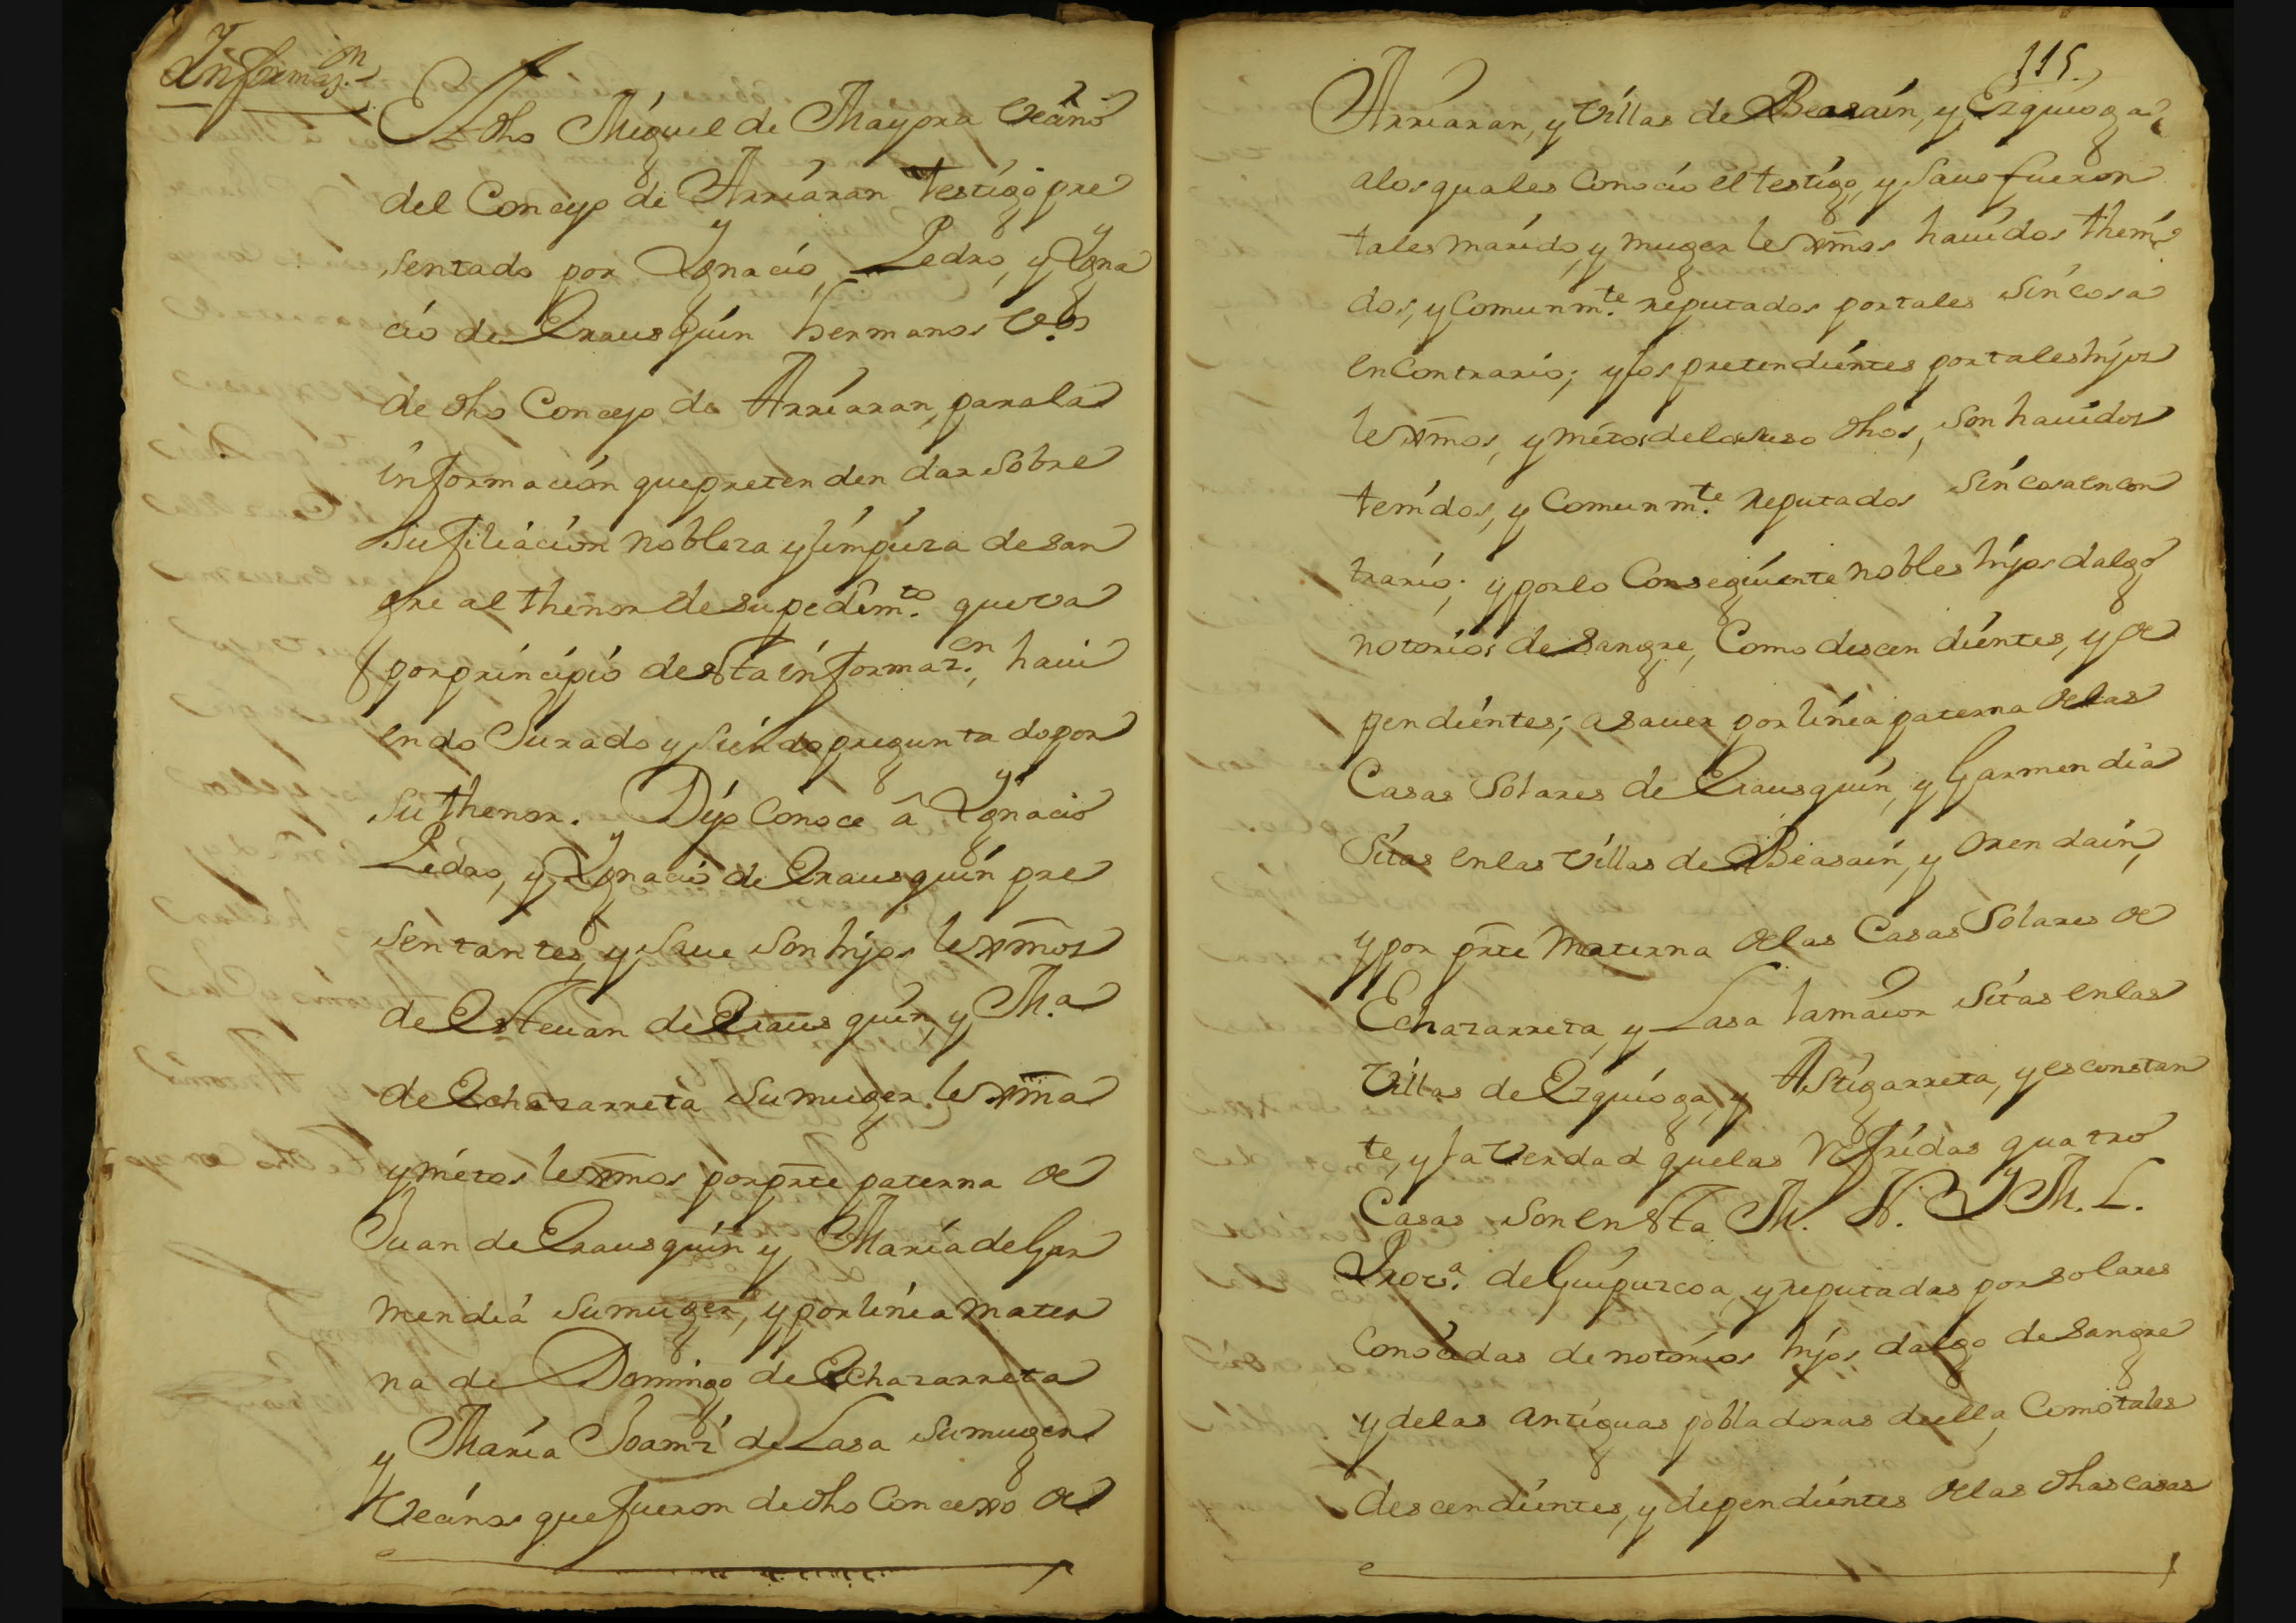 Informaz.on
El dho Miguel de Mayora vecino
del Concejo de Arriaran testigo pre
sentado por Ygnacio, Pedro, y Ygna
cio de Erausquin hermanos v.os
de dho Concejo de Arriaran, para la
informacion que pretenden dar sobre
su filiacion nobleza y limpieza de san
gre al thenor de su pedim.to que va
por principio de esta informaz.on, havi
endo Jurado y siendo preguntado por
su thenor. Dijo Conoce â Ygnacio
Pedro, y Ygnacio de Erausquin pre
sentantes, y save son hijos lexmos
de Estevan de Erausquin, y M.a
de Echazarreta su muger lexma
y nietos lexmos por prte paterna de
Juan de Erausquin y Maria de Gar
mendia su muger, y por linea mater
na de Domingo de Echazarreta
y Maria Joaniz de Lasa su muger
vecinos que fueron de dho Concexo de
115.
Arriaran, y villas de Beasain, y Ezquioga
a los quales Conocio el testigo, y save fueron
tales marido, y muger lexmos havidos theni
dos, y Comunm.te reputados por tales sin cosa
en Contrario; y los pretendientes por tales hijos
lexmos, y nietos de los suso dhos, son havidos
tenidos, y Comunm.te reputados sin cosa en con
trario; y por lo Conseguiente nobles hijos dalgo
notorios de sangre, Como descendientes, y de
pendientes; a saver por linea paterna de las
Casas Solares de Erausquin, y Garmendia
sitas en las villas de Beasain, y Orendain,
y por prte materna de las Casas Solares de
Echazarreta, y Lasa la maior sitas en las
villas de Ezquioga, y Astigarreta, y es constan
te, y la verdad que las Refridas quatro
Casas son en esta M. N. Y M. L.
Prov.a de Guipuzcoa, y reputadas por solares
Conocidas de notorios hijos dalgo de sangre
y de las antiguas pobladoras de ella, Como tales
descendientes, y dependientes de las dhas casas